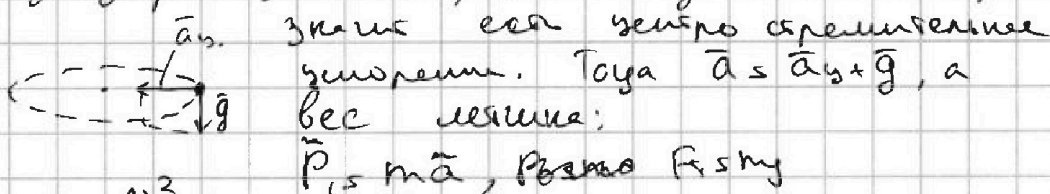 āц. Значит есть центро стремительное
ускорение. Тогда ā = āц + ḡ, а
ḡ вес летчика:
P̄₁ = mā, F₁ = mg